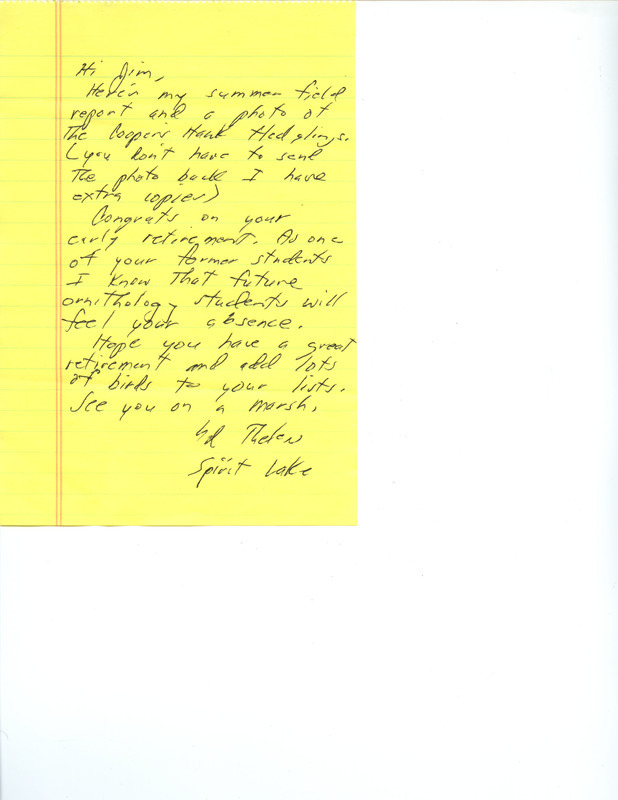 Hi Jim,
Here's my summer field
report and a photo of
the Cooper's Hawk fledglings.
(you don't have to send
the photo back I have
extra copies)
Congrats on your
early retirement. As one
of your former students
I know that future
ornithology students will
feel your absence.
Hope you have a great
retirement and add lots
of birds to your lists.
See you on a marsh.
Ed Thelen
Spirit Lake